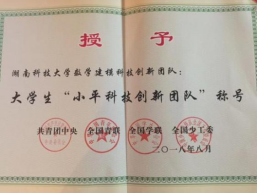 授予
湖南科技大学数学建模科技创新团队：
大学生“小平科技创新团队”称号
共青团中央 全国青联 全国学联 全国少工委
二〇一八年八月